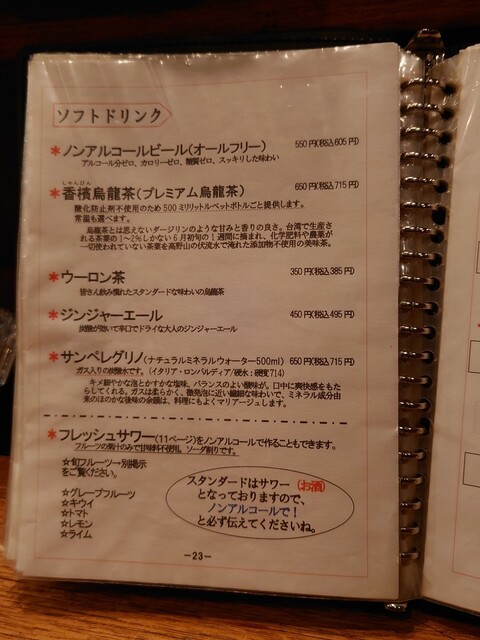 ソフトドリンク
＊ノンアルコールビール(オールフリー) 550円(税込605円)
アルコール分ゼロ、カロリーゼロ、糖質ゼロ、スッキリした味わい
しゃんぴん
＊香檳烏龍茶(プレミアム烏龍茶) 650円(税込715円)
酸化防止剤不使用のため500ミリリットルペットボトルごと提供します。
常温も選べます。
烏龍茶とは思えないダージリンのような甘みと香りの良さ。台湾で生産さ
れる茶葉の1～2%しかない6月初旬の1週間に摘まれ、化学肥料や農薬が
一切使われていない茶葉を高野山の伏流水で淹れた添加物不使用の美味茶。
＊ウーロン茶 350円(税込385円)
皆さん飲み慣れたスタンダードな味わいの烏龍茶
＊ジンジャーエール 450円(税込495円)
炭酸が効いて辛口でドライな大人のジンジャーエール
＊サンペレグリノ(ナチュラルミネラルウォーター500ml) 650円(税込715円)
ガス入りの炭酸水です。(イタリア・ロンバルディア/硬水：硬度714)
キメ細やかな泡とかすかな塩味、バランスのよい酸味が、口中に爽快感をもた
らしてくれる。ガスは柔らかく、微発泡に近い繊細な味わいで、ミネラル成分由
来のほのかな後味の余韻は、料理にもよくマリアージュします。
＊フレッシュサワー(11ページ)をノンアルコールで作ることもできます。
フルーツの果汁のみで甘味料不使用、ソーダ割りです。
☆旬フルーツ→別掲示
をご覧ください。
☆グレープフルーツ
☆キウイ
☆トマト
☆レモン
☆ライム
スタンダードはサワー(お酒)
となっておりますので、
ノンアルコールで！
と必ず伝えてくださいね。
－23－